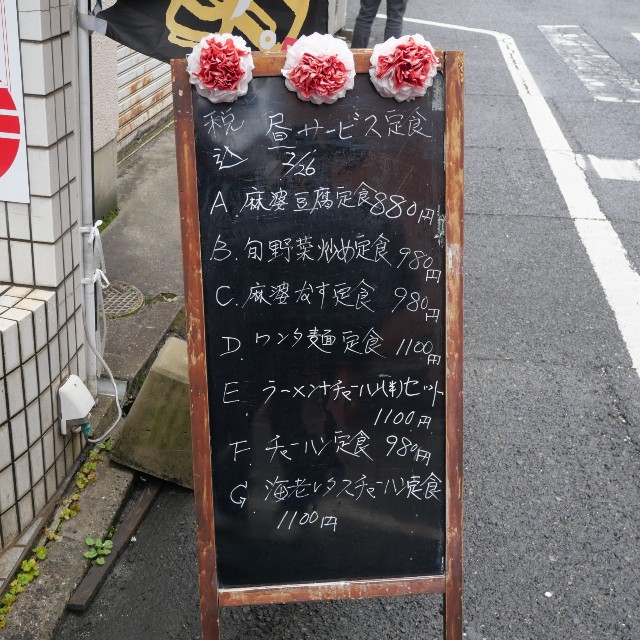 税込 昼サービス定食
3/26
A. 麻婆豆腐定食 880円
B. 旬野菜炒め定食 980円
C. 麻婆なす定食 980円
D. ワンタ麺定食 1100円
E. ラーメン+チャーハン(半)セット
1100円
F. チャーハン定食 980円
G. 海老レタスチャーハン定食
1100円